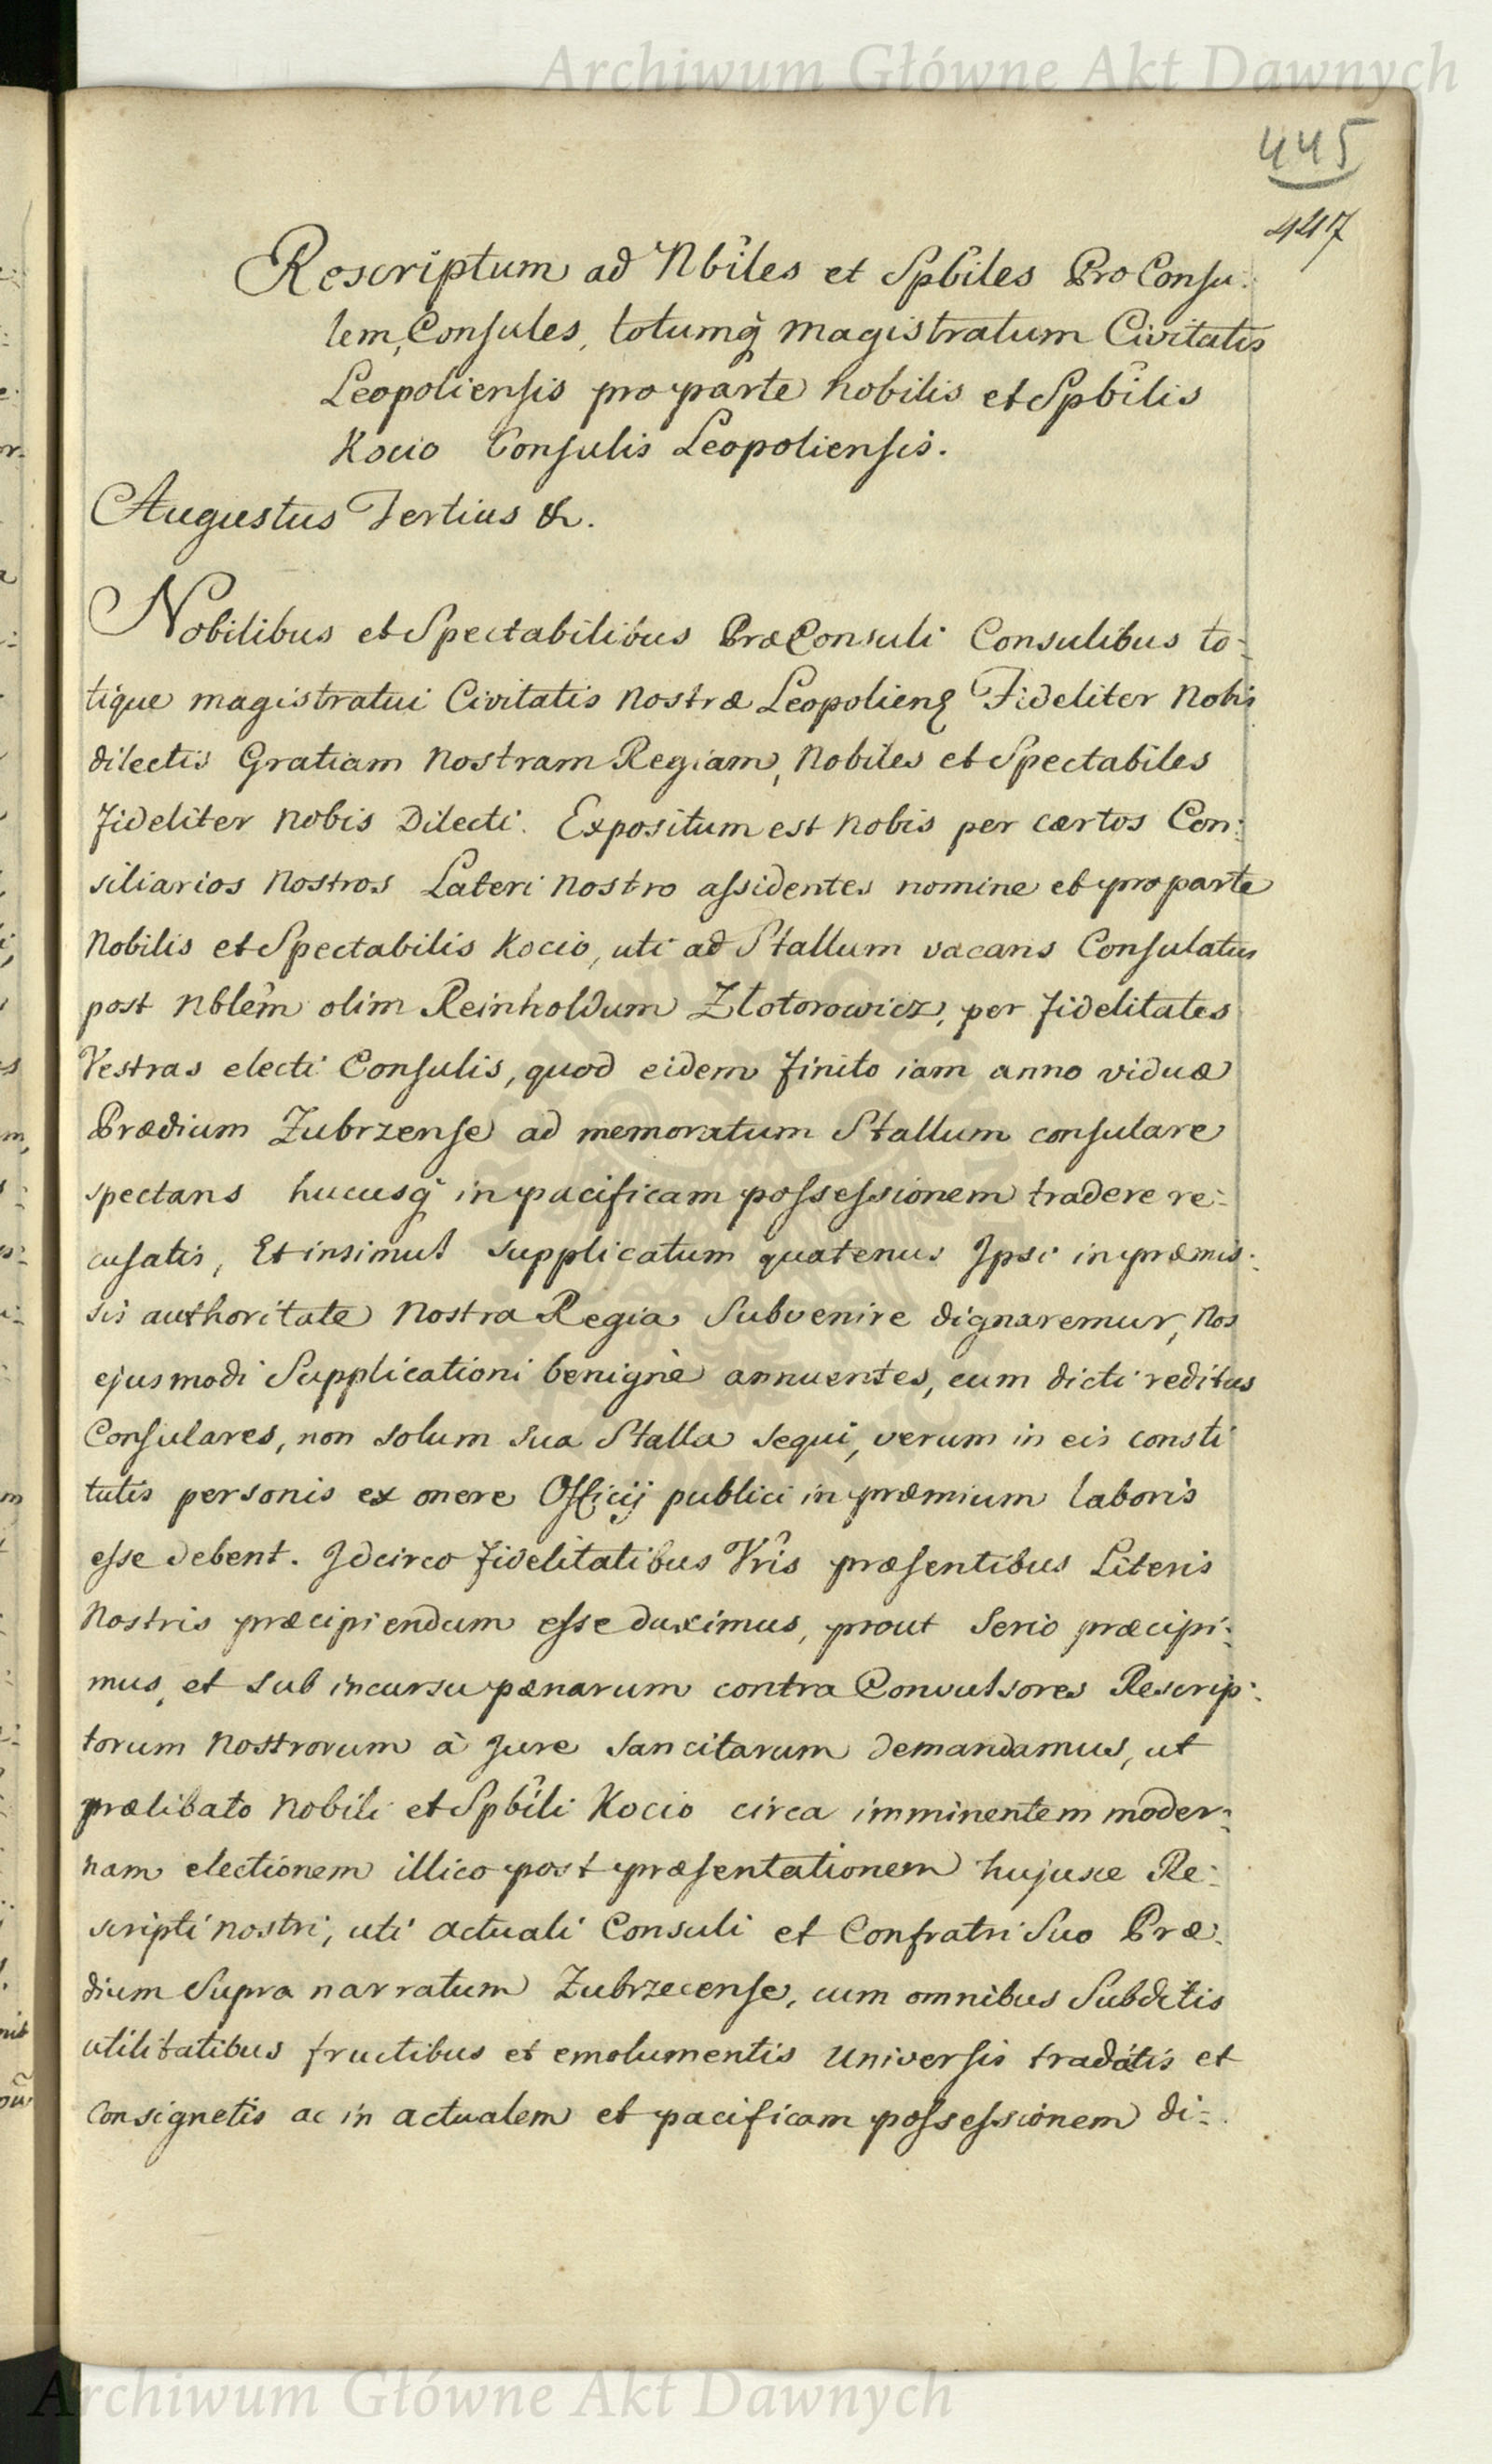 Archiwum Główne Akt Dawnych
445
447
Rescriptum ad Nbîles et Spbîles ProConsu-
lem, Consules, totumq̀ magistratum Civitatis
Leopoliensis pro parte nobilis et Spbîlis
Kocio Consulis Leopoliensis.
Augustus Tertius &.
Nobilibus et Spectabilibus PræConsuli Consulibus to-
tique magistratui Civitatis nostræ Leopolienę Fideliter Nobis
dilectis Gratiam nostram Regiam, nobiles et Spectabiles
fideliter nobis Dilecti. Expositum est nobis per cærtos Con-
siliarios nostros Lateri nostro assidentes nomine et pro parte
Nobilis et Spectabilis Kocio, uti ad Stallum vacans Consulatus
post Nblêm olim Reinholdum Zlotorowicz, per fidelitates
Vestras electi Consulis, quod eidem finito iam anno viduæ
Prædium Zubrzense ad memoratum Stallum consulare
spectans hucusq̀ in pacificam possessionem tradere re-
cusatis, Et insimul supplicatum quatenus Ipsi in præmis-
sis authoritate nostra Regia Subvenire dignaremur, Nos
ejusmodi Supplicationi benignè annuentes, cum dicti reditus
Consulares, non solum sua Stalla sequi, verum in eis consti
tutis personis ex onere Officij publici in præmium laboris
esse debent. Idcirco fidelitatibus Vrîs præsentibus Literis
Nostris præcipiendum esse duximus, prout Serio præcipi-
mus, et sub incursu pænarum contra Convulsores Rescrip-
torum nostrorum à Jure sancitarum demandamus, ut
prælibato nobili et Spbîli Kocio circa imminentem moder-
nam electionem illico post præsentationem hujusce Re-
scripti nostri, uti actuali Consuli et Confratri Suo Præ-
dium Supra narratum Zubrzecense, cum omnibus Subditis
utilitatibus fructibus et emolumentis universis tradatis et
Consignetis ac in actualem et pacificam possessionem di-
Archiwum Główne Akt Dawnych